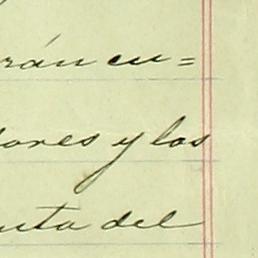 rán cu=
dores y los
nta del